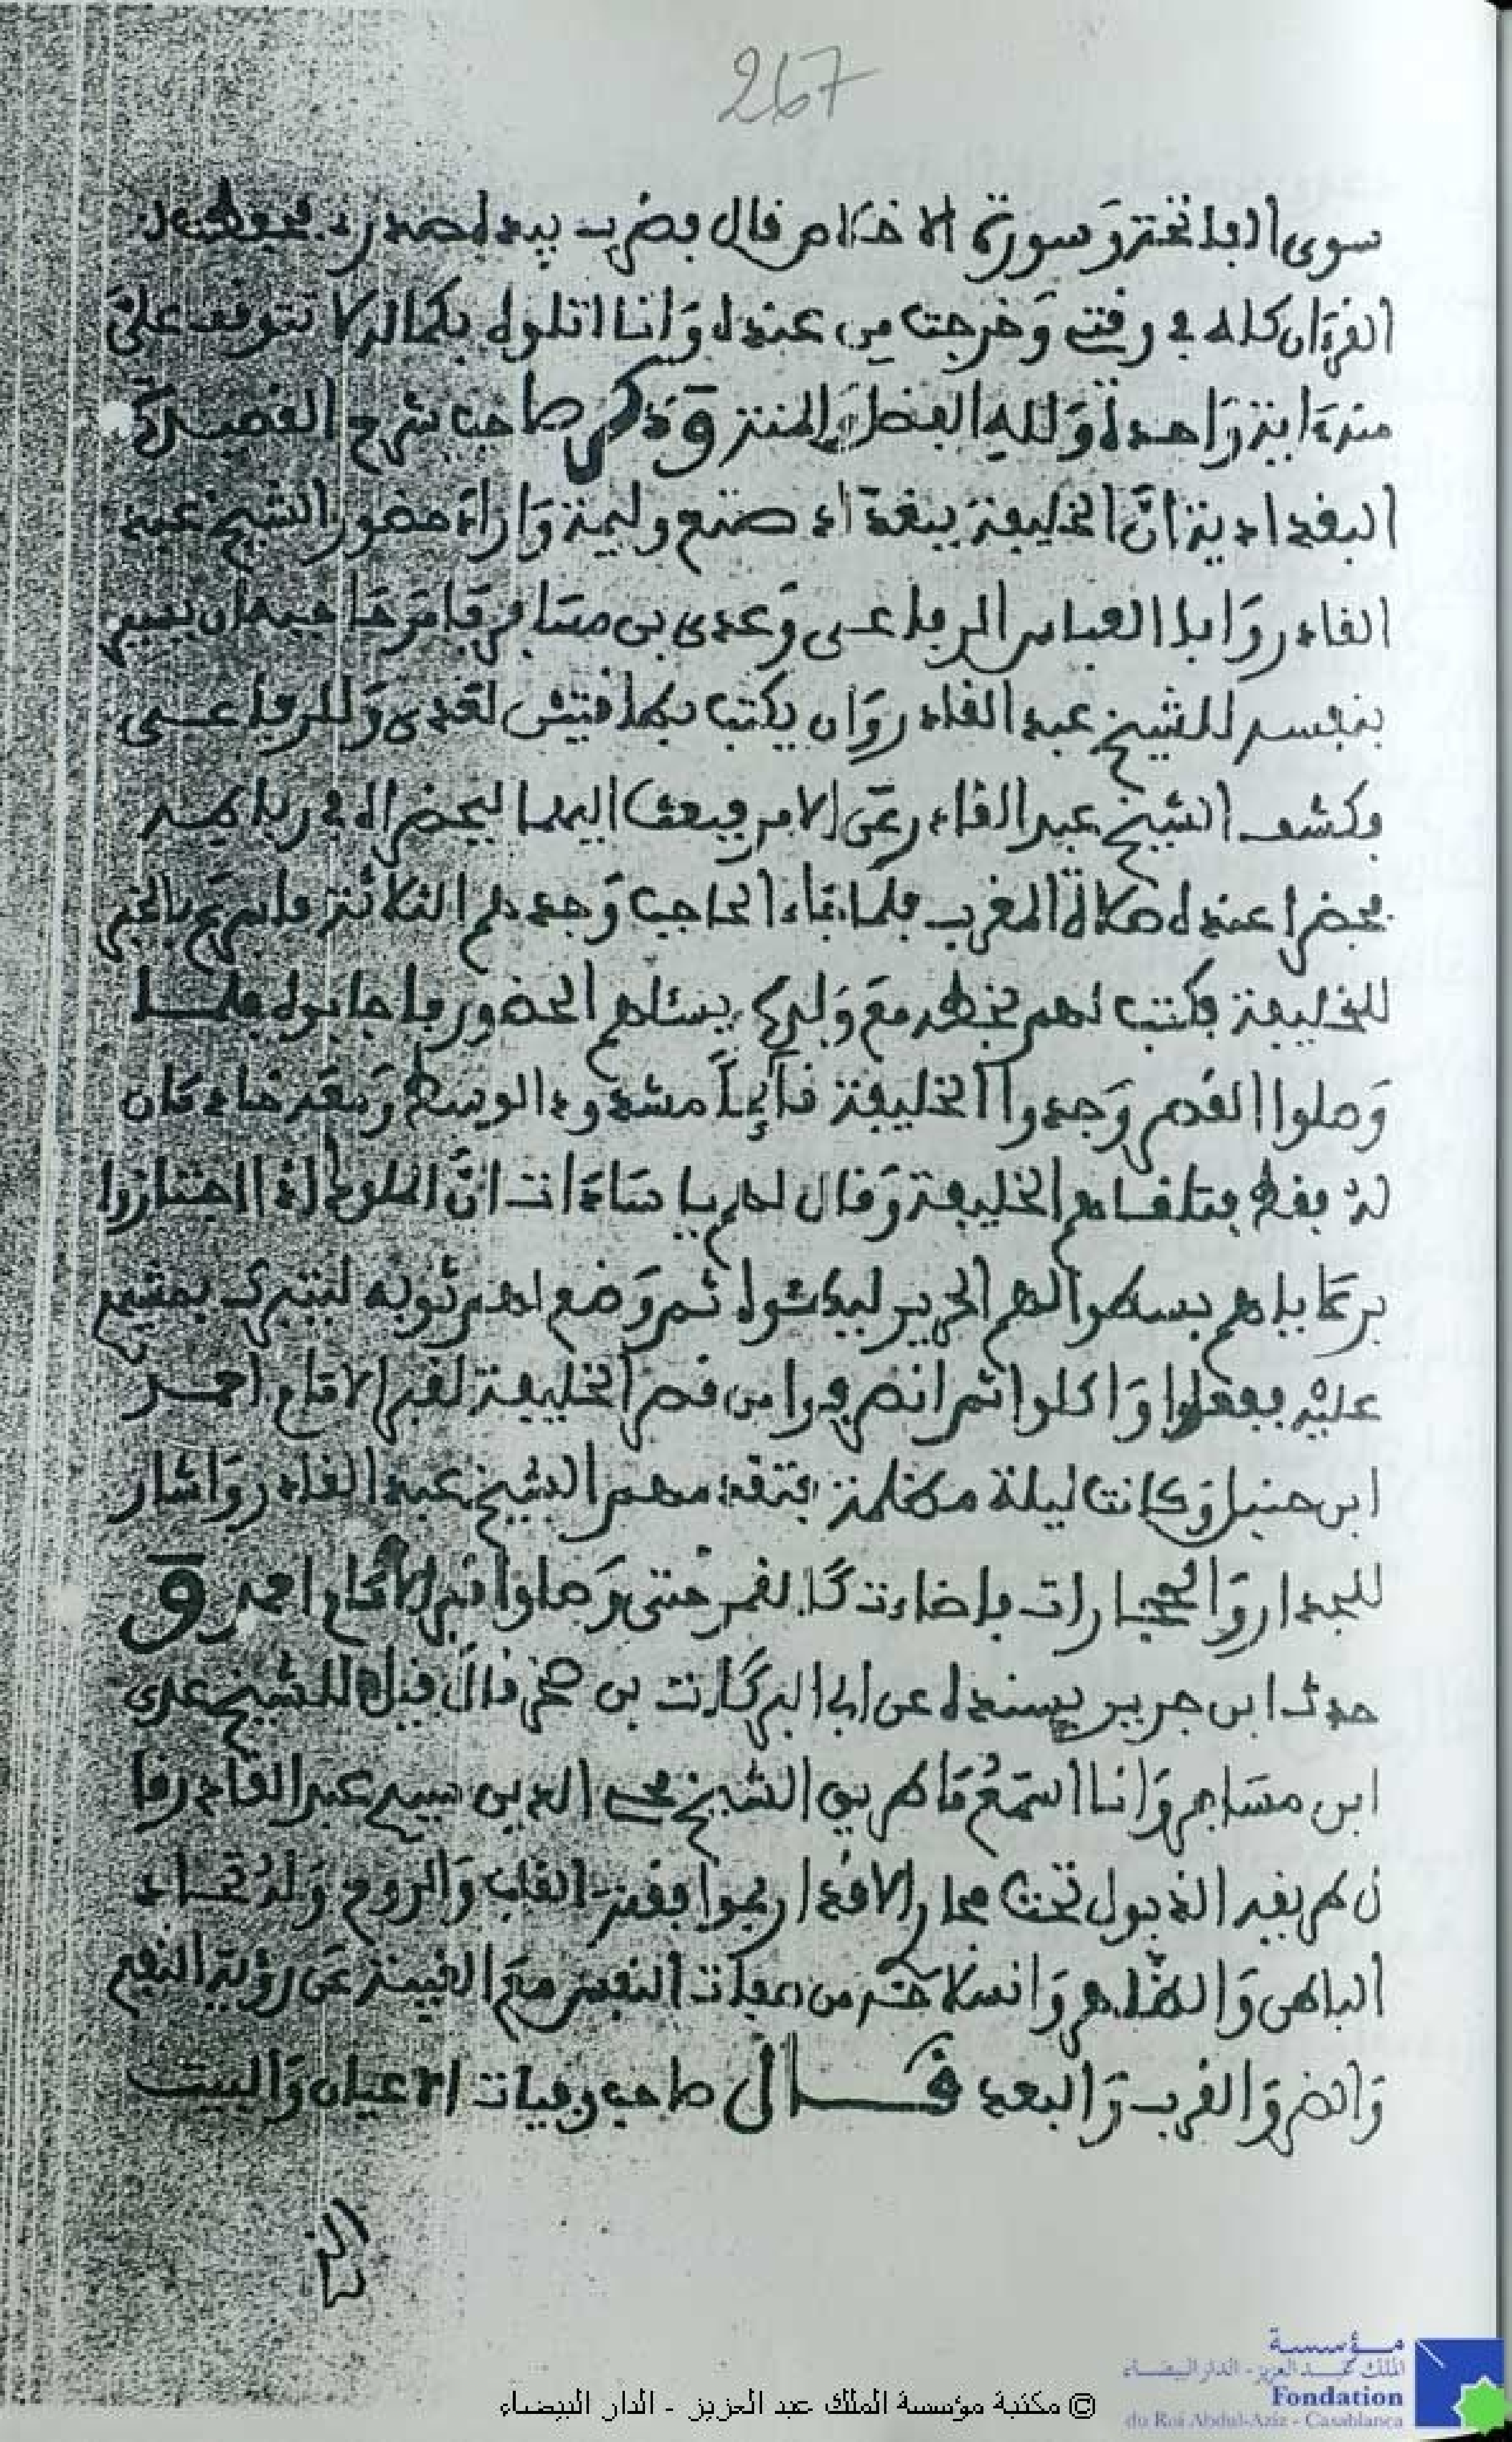 267
سوى الفاتحة وسورة الاخلاص قال فضرب بيده صدره فحفظت
القرءان كله في وقت وخرجت من عنده وانا اتلوه بكماله لا نتوقف على
منه ءاية واحدة ولله الفضل والمنة وذكر صاحب شرح القصيدة
البغدادية ان الخليفة ببغداد صنع وليمة واراد حضور الشيخ عبد
القادر وابا العباس الرفاعي وعدي بن مسافر فامر حاجبه ان يسير
بنفسه للشيخ عبد القادر وان يكتب بطاقتين لعدى وللرفاعي
فكشف الشيخ عبد القادر عن الامر فبعث اليهما ليحضرا في رباطه
فحضرا عنده صلاة المغرب فلما جاء الحاجب وجدهم الثلاثة فاسرع بالخبر
للخليفة فكتب لهم بخطه مع ولده يسئلهم الحضور فاجابوه فلما
وصلوا القصر وجدوا الخليفة قايما مشدود الوسط ومعه خادمان
له فقط فتلقاهم الخليفة وقال لهم يا سادات ان الملوك اذا اجتازوا
برعاياهم بسطوا لهم الحرير ليدشوه ثم وضع لهم ثوبه ليتبرك بمشيهم
عليه ففعلوا واكلوا ثم انصرفوا من قصر الخليفة لقبر الامام احمد
ابن حنبل وكانت ليلة مظلمة فتقدمهم الشيخ عبد القادر واشار
للجدار والحجارات فاضاءت كالقمر حتى وصلوا قبر الامام احمد و
حدث ابن جرير بسنده عن ابا البركات بن صخر قال قيل للشيخ عدي
ابن مسافر وانا اسمع ما طريق الشيخ محي الدين سيدي عبد القادر قا
ل طريقه الذبول تحت مجار الاقدار بموافقة القلب والروح واتحاد
الباطن والظاهر وانسلاخه من صفات النفس مع الغيبة عن رؤية النفع
والضر والقرب والبعد قال صاحب وفيات الاعيان والبيت
الذ
مؤسسة
الملك عبد العزيز - الدار البيضاء
Fondation
du Roi Abdul-Aziz - Casablanca
© مكتبة مؤسسة الملك عبد العزيز - الدار البيضاء